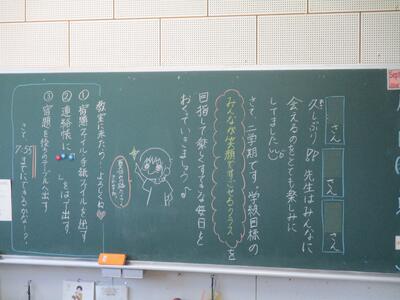 さん
さん
久しぶり!!
先生はみんなに
会えるのをとても楽しみに
してました
さて、二学期です。学級目標の
みんなが笑顔ですごせるクラス を
目指して楽しくすてきな毎日を
おくっていきましょう♪
教室に来たら よろしくね
① 宿題ファイル・手紙ファイルを出す
② 連絡帳に
をはって出す
③ 宿題を後ろのテーブルへ出す
さて 7:55までにできるかな〜?
Sept